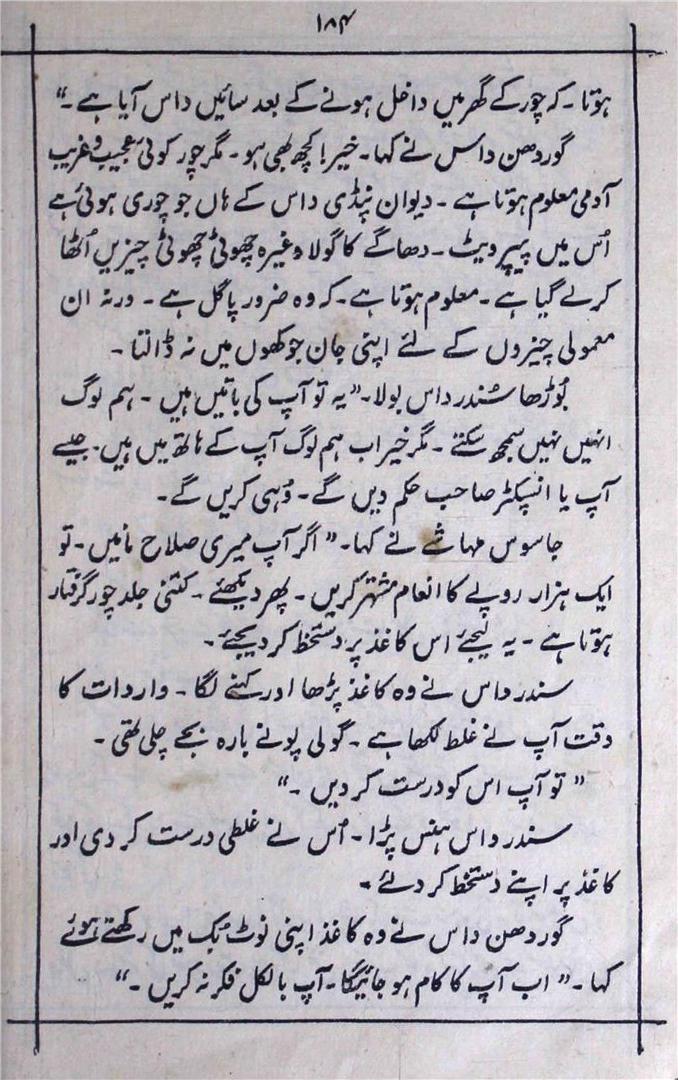 ۱۸۴
ہوتا۔ کہ چور کے گھر میں داخل ہونے کے بعد سائیں داس آیا ہے۔“
گوردھن داس نے کہا۔ خیر! کچھ بھی ہو۔ مگر چور کوئی عجیب و غریب
آدمی معلوم ہوتا ہے۔ دیوان پنڈی داس کے ہاں جو چوری ہوئی ہے
اُس میں پیپر ویٹ۔ دھاگے کا گولا وغیرہ چھوٹی چھوٹی چیزیں اُٹھا
کر لے گیا ہے۔ معلوم ہوتا ہے۔ کہ وہ ضرور پاگل ہے۔ ورنہ ان
معمولی چیزوں کے لئے اپنی جان جوکھوں میں نہ ڈالتا۔
بُوڑھا سُندر داس بولا۔ ”یہ تو آپ کی باتیں ہیں۔ ہم لوگ
انہیں نہیں سمجھ سکتے۔ مگر خیر اب ہم لوگ آپ کے ہاتھ میں ہیں۔ جیسے
آپ یا انسپکٹر صاحب حکم دیں گے۔ وُہی کریں گے۔
جاسوس مہاشے نے کہا۔ ”اگر آپ میری صلاح مانیں۔ تو
ایک ہزار روپے کا انعام مشتہر کریں۔ پھر دیکھئے۔ کتنی جلد چور گرفتار
ہوتا ہے۔ یہ لیجئے اس کاغذ پر دستخط کر دیجئے۔
سندر داس نے وہ کاغذ پڑھا اور کہنے لگا۔ واردات کا
وقت آپ نے غلط لکھا ہے۔ گولی پونے بارہ بجے چلی تھی۔
”تو آپ اس کو درست کر دیں۔“
سندر داس ہنس پڑا۔ اُس نے غلطی درست کر دی اور
کاغذ پر اپنے دستخط کر دئے۔
گوردھن داس نے وہ کاغذ اپنی نوٹ بُک میں رکھتے ہوئے
کہا۔ ”اب آپ کا کام ہو جائیگا۔ آپ بالکل فکر نہ کریں۔“